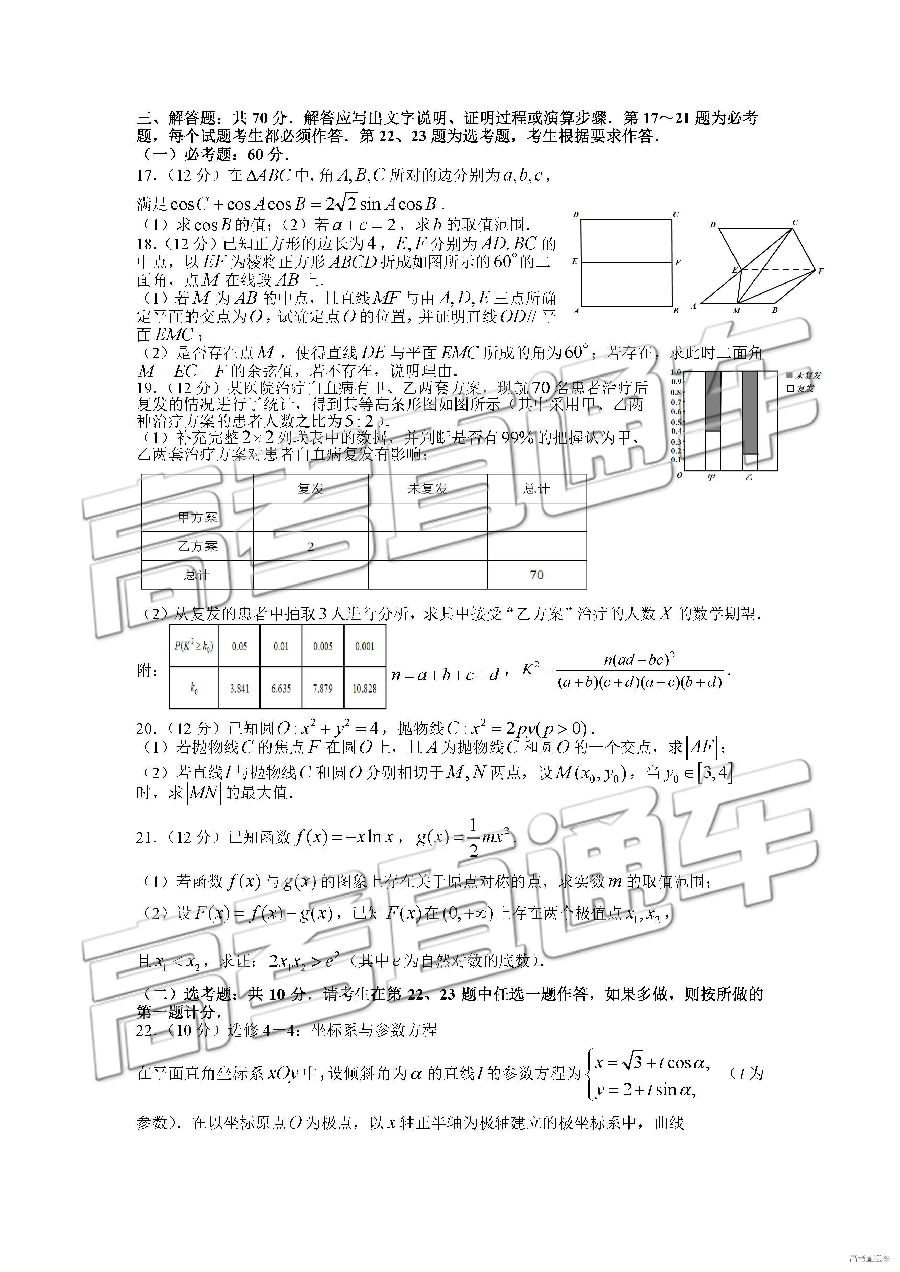 三、解答题：共 70 分．解答应写出文字说明、证明过程或演算步骤．第 17～21 题为必考
题，每个试题考生都必须作答．第 22、23 题为选考题，考生根据要求作答．
（一）必考题：60 分．
17.（12 分）在 ΔABC 中，角 A, B, C 所对的边分别为 a, b, c，
满足 cos C + cos A cos B = 2√2 sin A cos B．
（1）求 cos B 的值；（2）若 a + c = 2，求 b 的取值范围．
18.（12 分）已知正方形的边长为 4，E, F 分别为 AD, BC 的
中点，以 EF 为棱将正方形 ABCD 折成如图所示的 60° 的二
面角，点 M 在线段 AB 上．
（1）若 M 为 AB 的中点，且直线 MF 与由 A, D, E 三点所确
定平面的交点为 O，试确定点 O 的位置，并证明直线 OD // 平
面 EMC；
（2）是否存在点 M，使得直线 DE 与平面 EMC 所成的角为 60°；若存在，求此时二面角
M－EC－F 的余弦值，若不存在，说明理由．
D C E F A B
D C E F A M B
19.（12 分）某医院治疗白血病有甲、乙两套方案，现就 70 名患者治疗后
复发的情况进行了统计，得到其等高条形图如图所示（其中采用甲、乙两
种治疗方案的患者人数之比为 5 : 2）．
（1）补充完整 2×2 列联表中的数据，并判断是否有 99% 的把握认为甲、
乙两套治疗方案对患者白血病复发有影响；
1.0
0.9
0.8
0.7
0.6
0.5
0.4
0.3
0.2
0.1
O 甲 乙
未复发
复发
复发 未复发 总计
甲方案
乙方案 2
总计 70
（2）从复发的患者中抽取 3 人进行分析，求其中接受“乙方案”治疗的人数 X 的数学期望．
附：
P(K² ≥ k₀) 0.05 0.01 0.005 0.001
k₀ 3.841 6.635 7.879 10.828
n = a + b + c + d，K² = n(ad − bc)² / (a + b)(c + d)(a + c)(b + d)．
20.（12 分）已知圆 O : x² + y² = 4，抛物线 C : x² = 2py(p > 0)．
（1）若抛物线 C 的焦点 F 在圆 O 上，且 A 为抛物线 C 和圆 O 的一个交点，求 |AF|；
（2）若直线 l 与抛物线 C 和圆 O 分别相切于 M, N 两点，设 M(x₀, y₀)，当 y₀ ∈ [3, 4]
时，求 |MN| 的最大值．
21.（12 分）已知函数 f(x) = −x ln x，g(x) = 1/2 mx²．
（1）若函数 f(x) 与 g(x) 的图象上存在关于原点对称的点，求实数 m 的取值范围；
（2）设 F(x) = f(x) − g(x)，已知 F(x) 在 (0, +∞) 上存在两个极值点 x₁, x₂，
且 x₁ < x₂，求证：2x₁x₂ > e²（其中 e 为自然对数的底数）．
（二）选考题：共 10 分．请考生在第 22、23 题中任选一题作答，如果多做，则按所做的
第一题计分．
22.（10 分）选修 4－4：坐标系与参数方程
在平面直角坐标系 xOy 中，设倾斜角为 α 的直线 l 的参数方程为 { x = √3 + t cos α, y = 2 + t sin α, （t 为
参数）．在以坐标原点 O 为极点，以 x 轴正半轴为极轴建立的极坐标系中，曲线
高考直通车
高考直通车
高考直通车